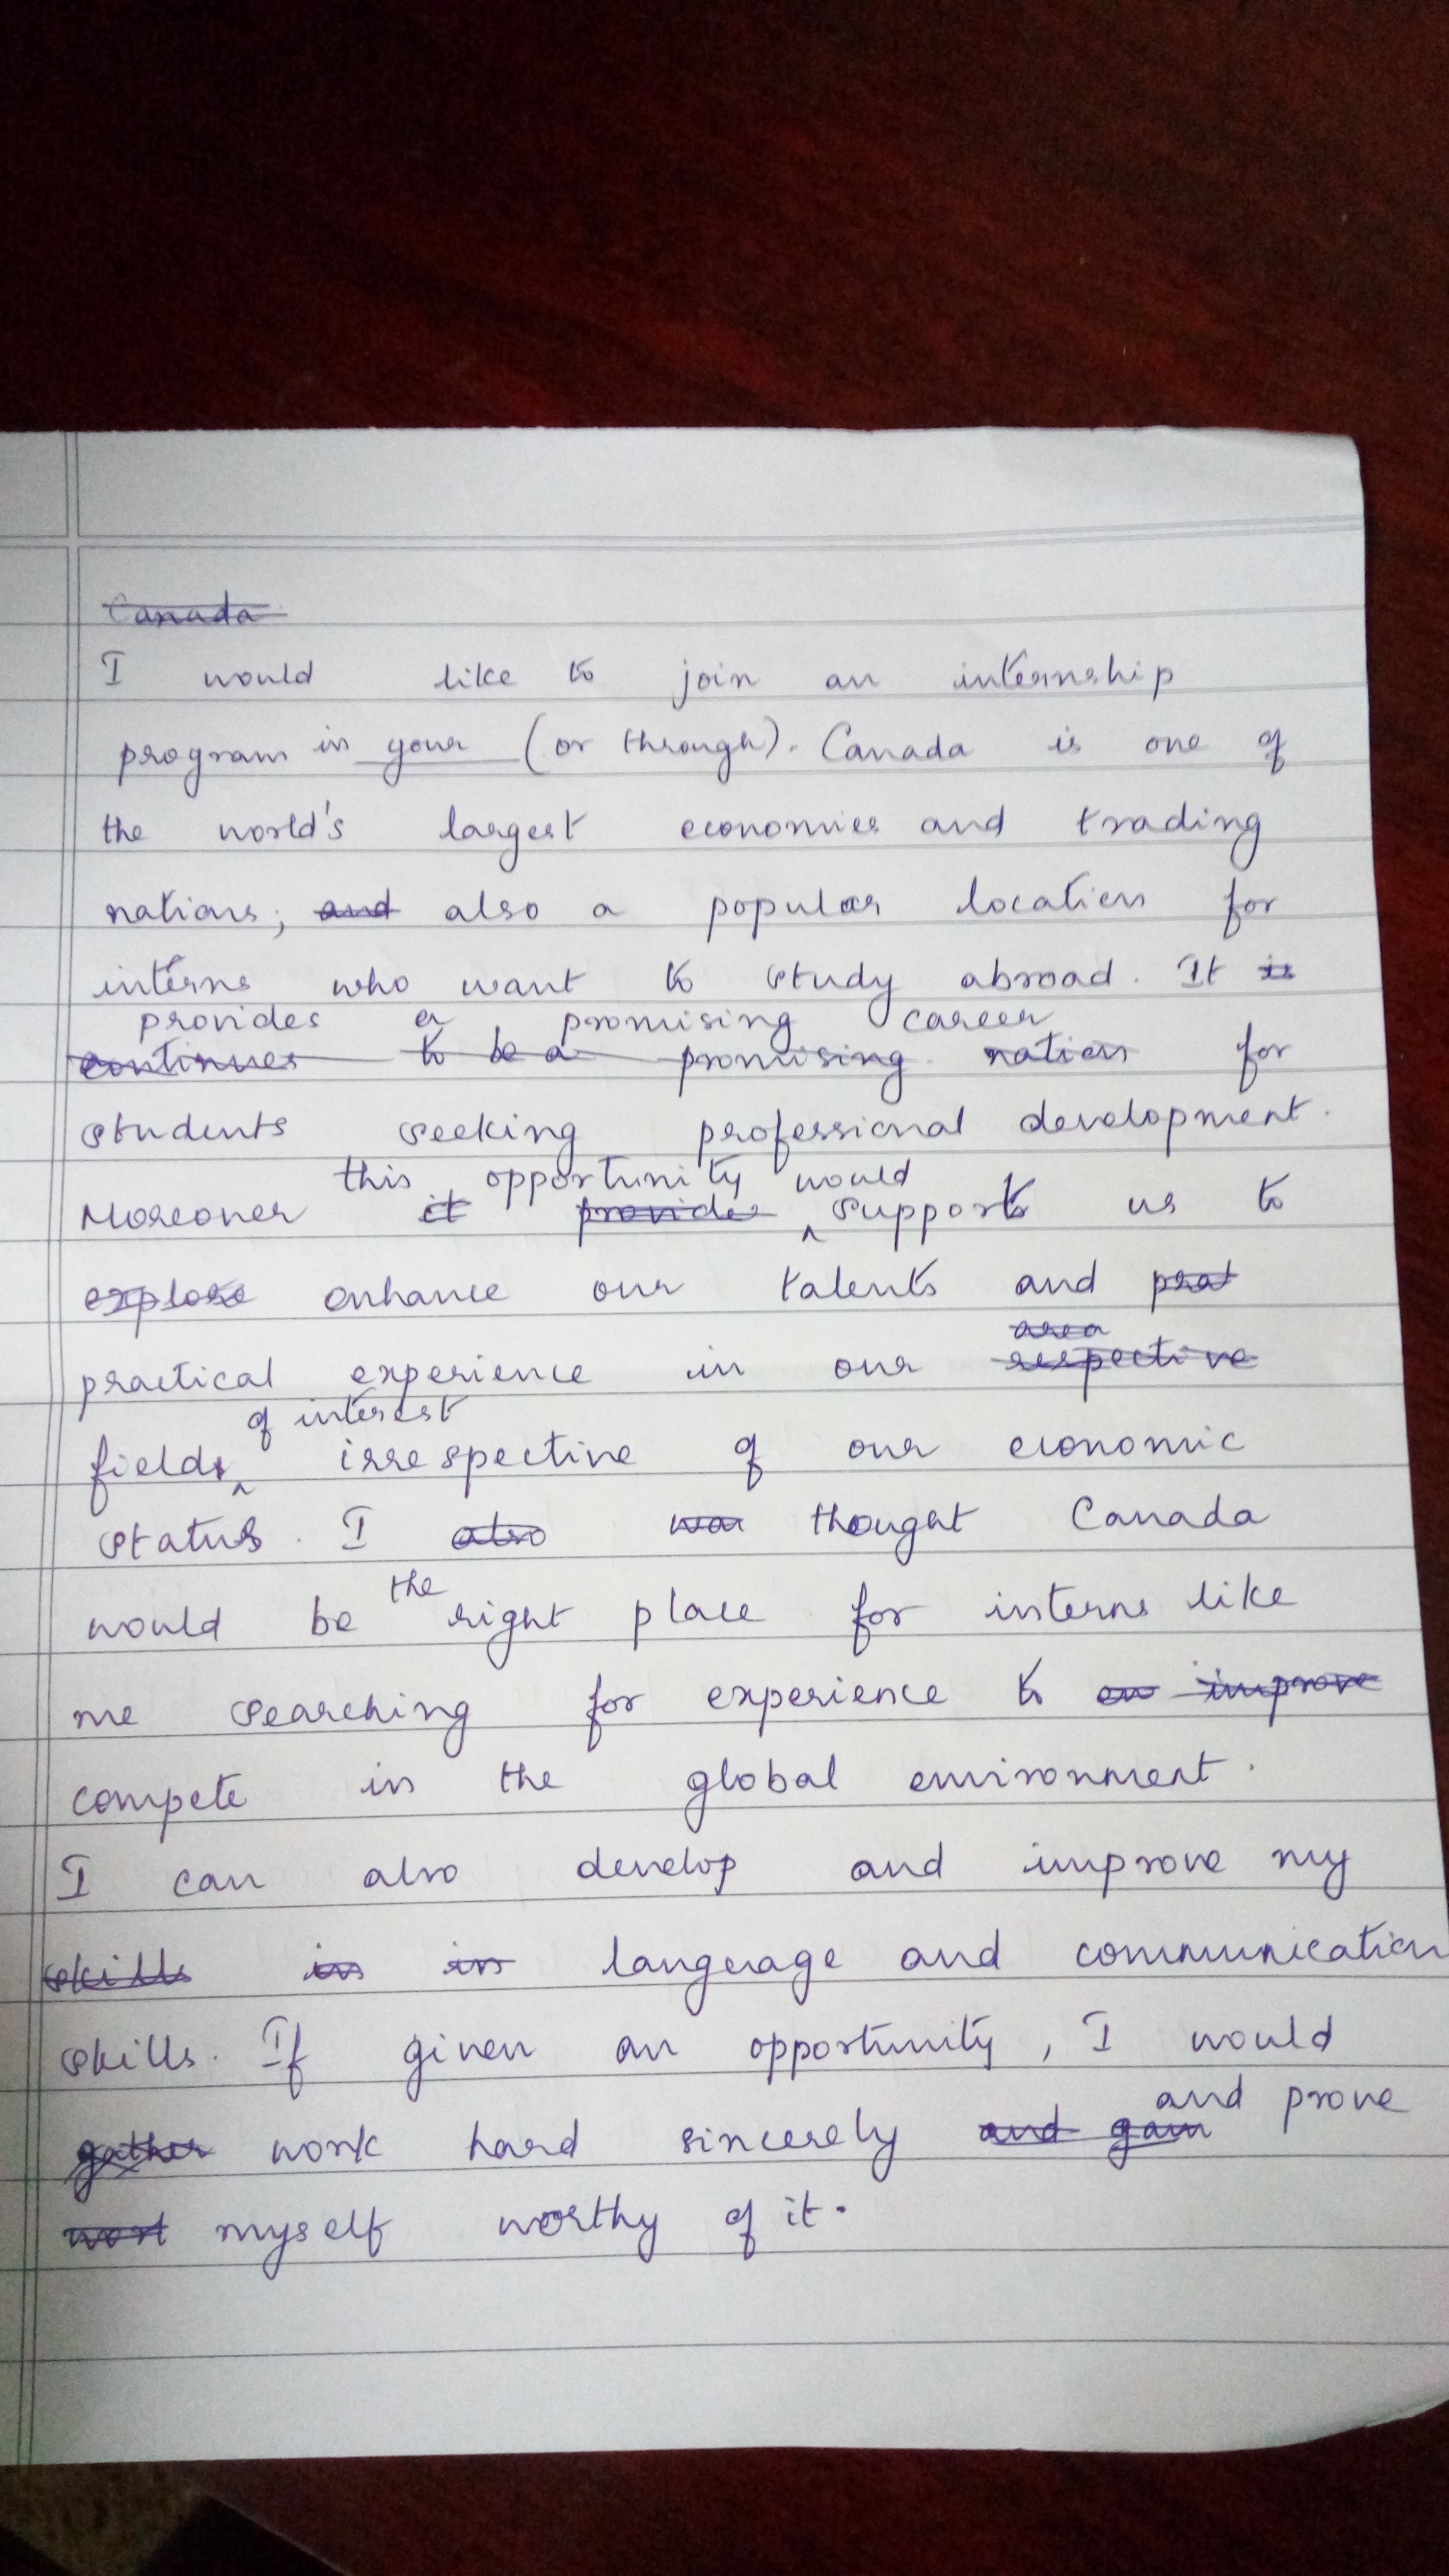 Canada
I would like to join an internship
program in your ______ (or through). Canada is one of
the world's largest economies and trading
nations; and also a popular location for
interns who want to study abroad. It is
provides a promising career
continues to be a promising nation for
students seeking professional development.
this opportunity would
Moreover it provides ^ support us to
explore enhance our talents and prat
practical experience in our respective
area
of interest
field ^ irrespective of our economic
status. I also was thought Canada
the
would be right place for interns like
me searching for experience to en improve
compete in the global environment.
I can also develop and improve my
skills in in language and communication
skills. If given an opportunity, I would
and prove
gather work hard sincerely and gain
wort myself worthy of it.